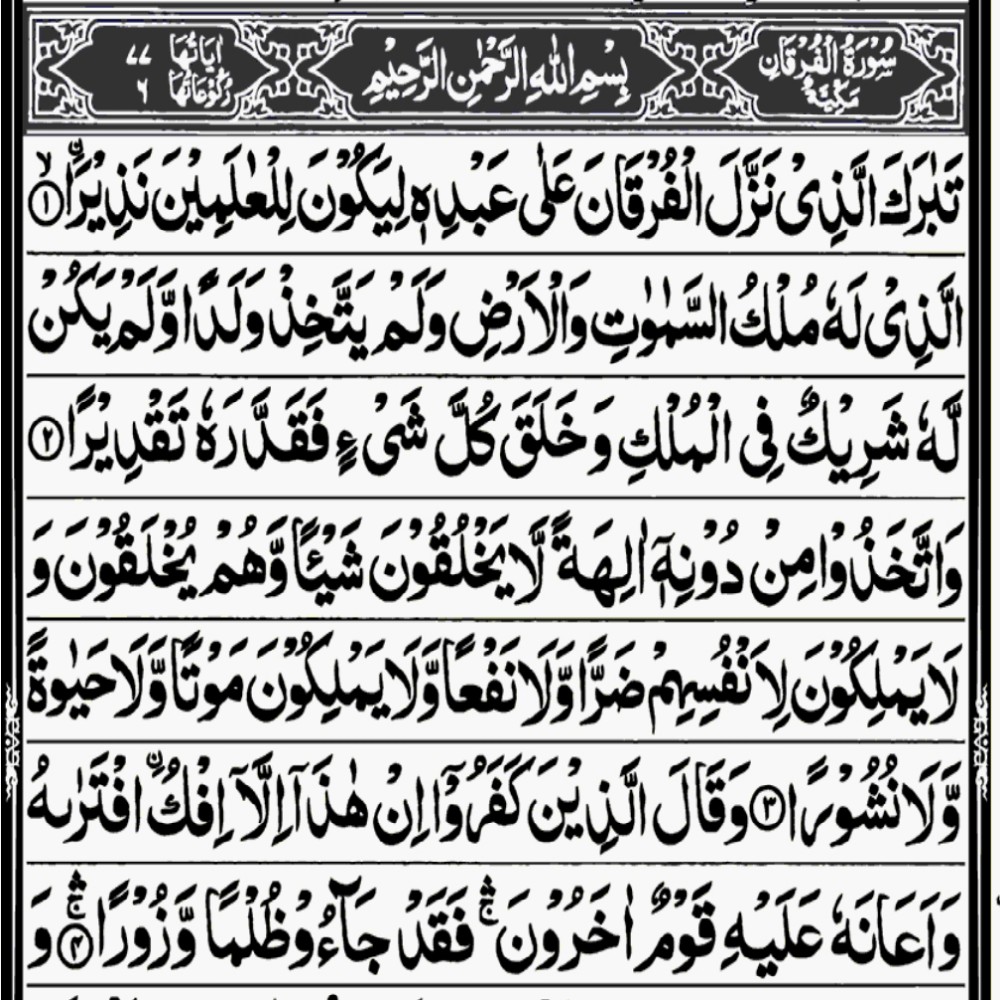 سُوْرَةُ الْفُرْقَانِ مَكِّيَّةٌ
بِسْمِ اللهِ الرَّحْمٰنِ الرَّحِيْمِ
اٰيَاتُهَا ٧٧
رُكُوْعَاتُهَا ٦
تَبٰرَكَ الَّذِىْ نَزَّلَ الْفُرْقَانَ عَلٰى عَبْدِهٖ لِيَكُوْنَ لِلْعٰلَمِيْنَ نَذِيْرًاۙ ﴿١﴾
الَّذِىْ لَهٗ مُلْكُ السَّمٰوٰتِ وَالْاَرْضِ وَلَمْ يَتَّخِذْ وَلَدًا وَّلَمْ يَكُنْ
لَّهٗ شَرِيْكٌ فِى الْمُلْكِ وَخَلَقَ كُلَّ شَىْءٍ فَقَدَّرَهٗ تَقْدِيْرًا ﴿٢﴾
وَاتَّخَذُوْا مِنْ دُوْنِهٖۤ اٰلِهَةً لَّا يَخْلُقُوْنَ شَيْـًٔا وَّهُمْ يُخْلَقُوْنَ وَ
لَا يَمْلِكُوْنَ لِاَنْفُسِهِمْ ضَرًّا وَّلَا نَفْعًا وَّلَا يَمْلِكُوْنَ مَوْتًا وَّلَا حَيٰوةً
وَّلَا نُشُوْرًا ﴿٣﴾ وَقَالَ الَّذِيْنَ كَفَرُوْۤا اِنْ هٰذَاۤ اِلَّاۤ اِفْكٌ اۨفْتَرٰىهُ
وَاَعَانَهٗ عَلَيْهِ قَوْمٌ اٰخَرُوْنَ ۛۚ فَقَدْ جَآءُوْ ظُلْمًا وَّزُوْرًا ۛۚ ﴿٤﴾ وَ